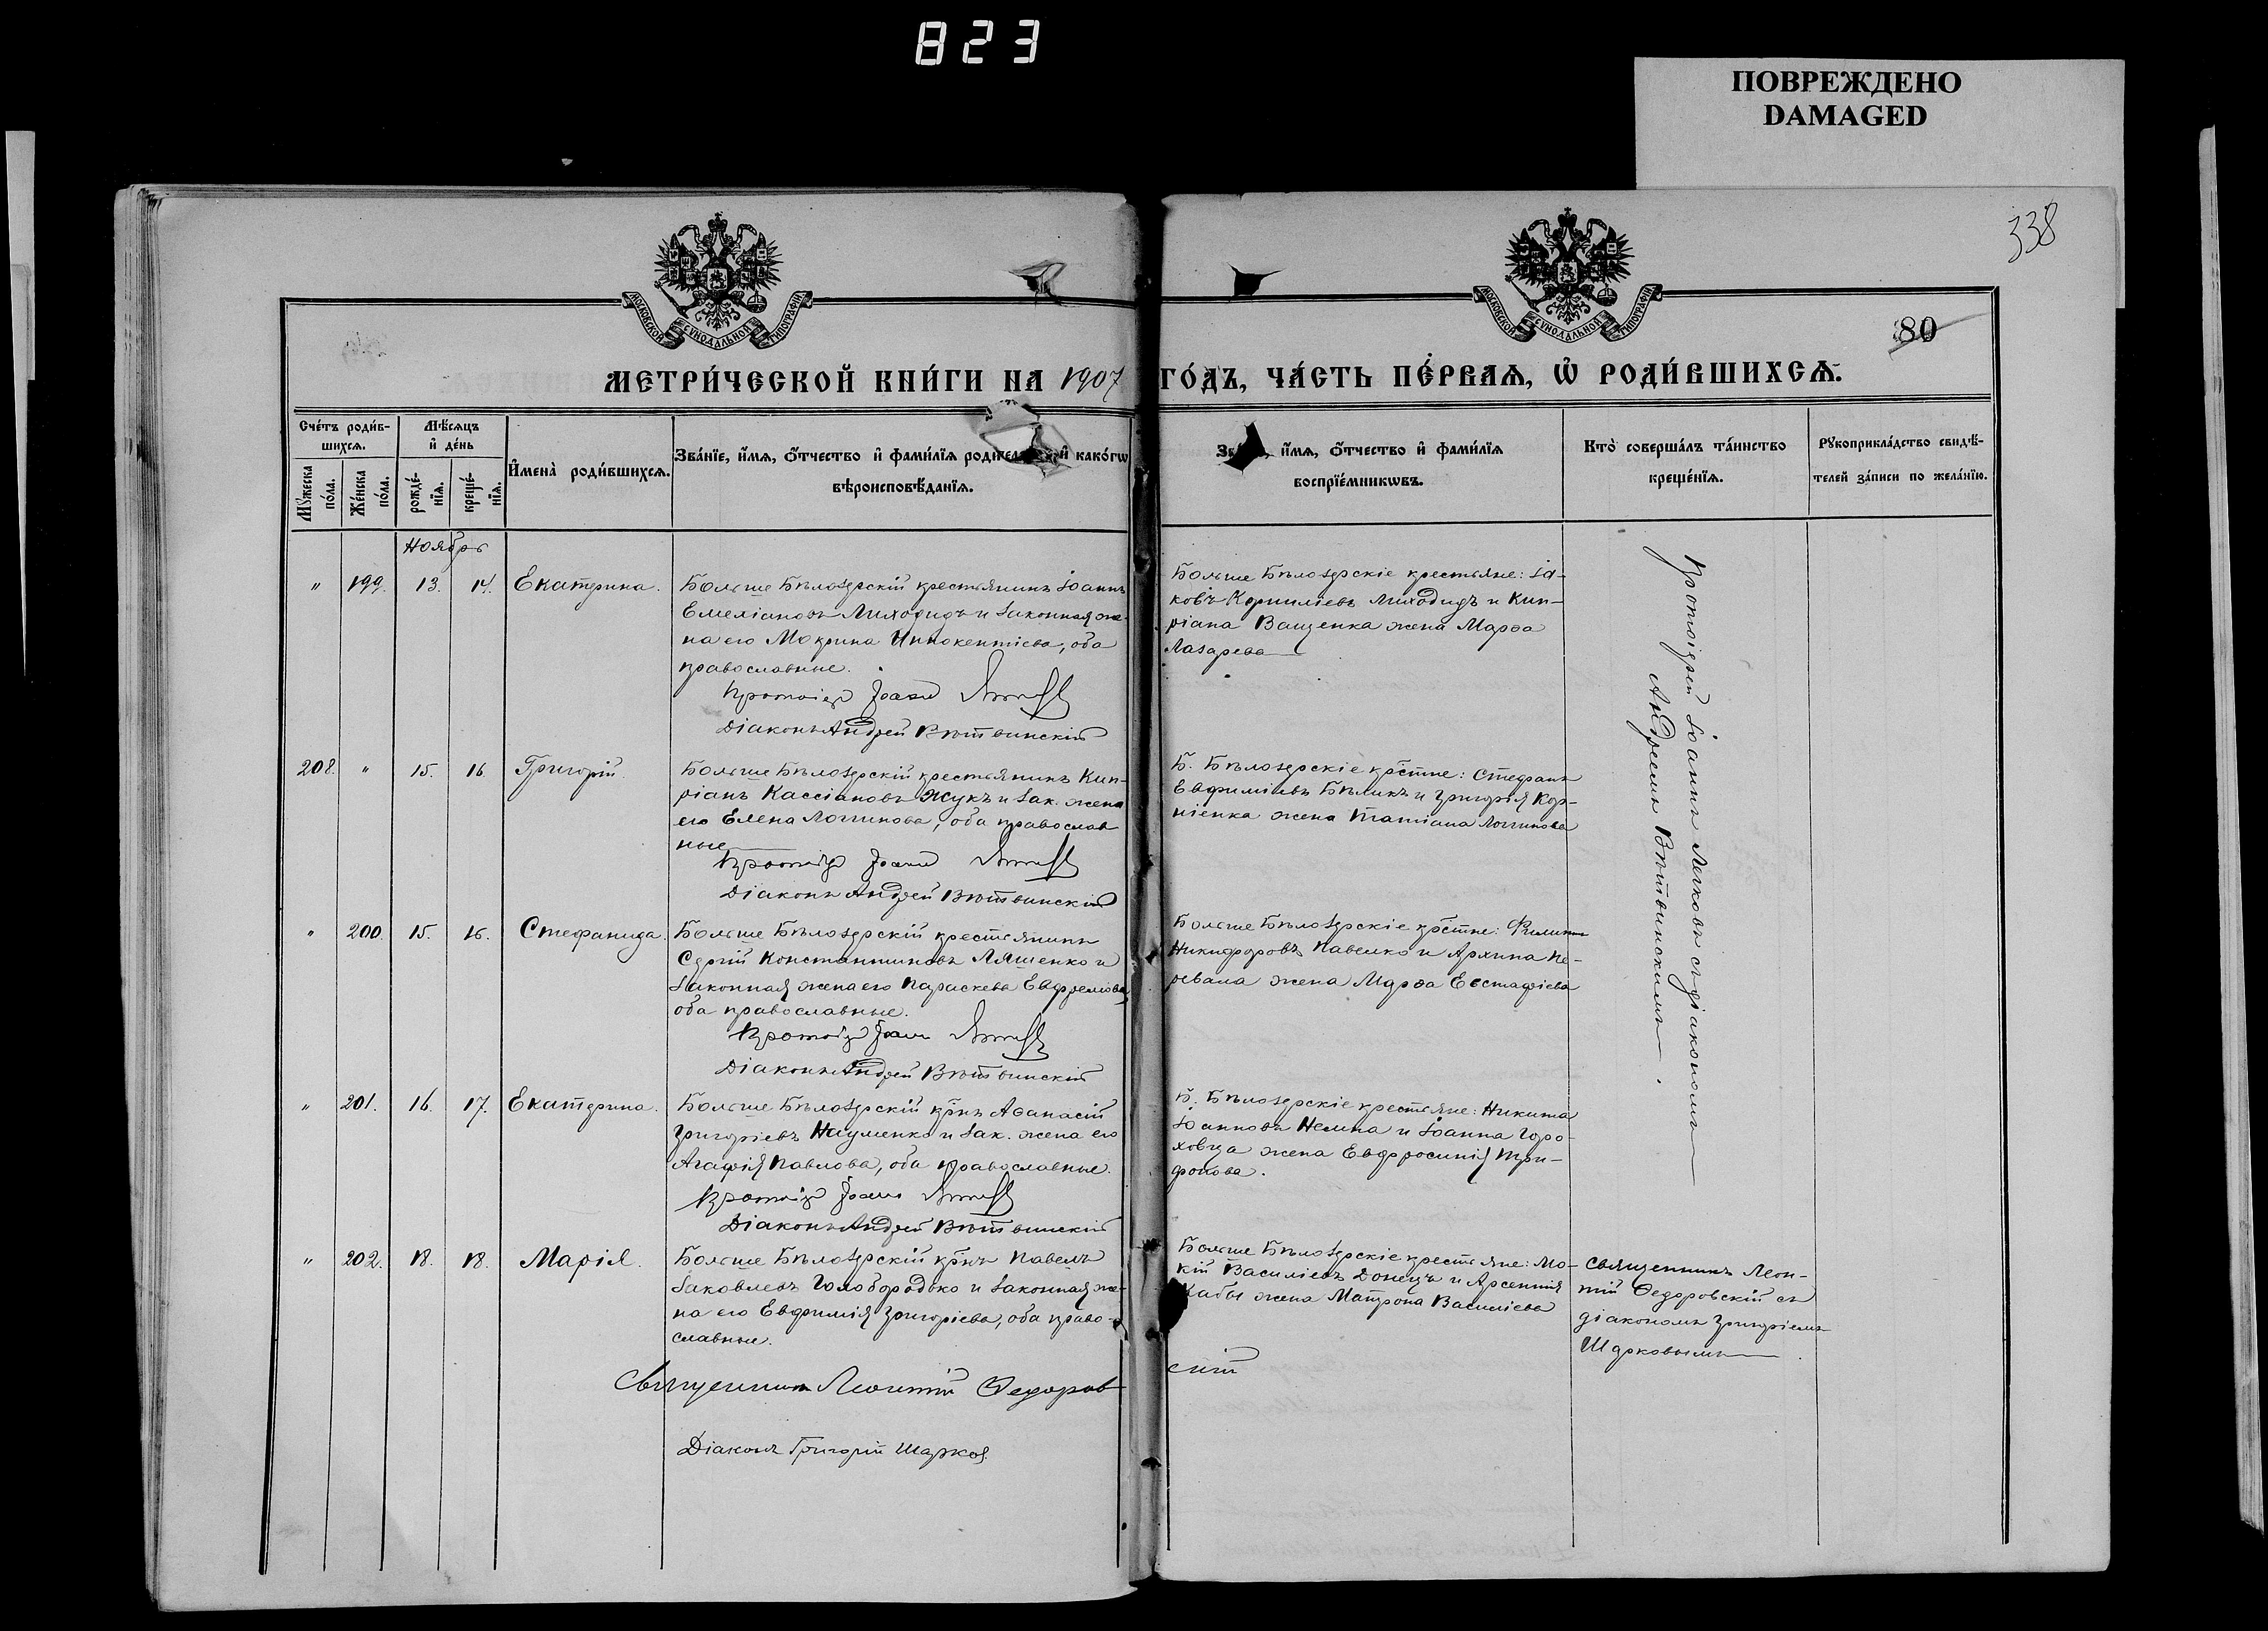 823
ПОВРЕЖДЕНО
DAMAGED
338
МОСКОВСКОЙ СѴНОДАЛЬНОЙ ТИПОГРАФІИ
МОСКОВСКОЙ СѴНОДАЛЬНОЙ ТИПОГРАФІИ
80
МЕТРИ́ЧЕСКОЙ КНИ́ГИ НА 1907 ГО́ДЪ, ЧА́СТЬ ПЕ́РВАѦ, Ѡ҆ РОДИ́ВШИХСѦ.
Сче́тъ роди́в-
шихсѧ.
Мꙋ́жеска по́ла.
Же́нска по́ла.
Мѣ́сяцъ
и҆ де́нь
рожде́-
нїѧ.
креще́-
нїѧ.
И҆мена̀ роди́вшихсѧ.
Зва́нїе, и҆́мѧ, ѻ҆́тчество и҆ фами́лїѧ роди́тел и҆ како́гѡ
вѣроисповѣ́данїѧ.
Зв , и҆́мѧ, ѻ҆́тчество и҆ фами́лїѧ
воспрїе́мникѡвъ.
Кто̀ соверша́лъ та́инство
креще́нїѧ.
Рꙋкоприкла́дство свидѣ́-
телей за́писи по жела́нїю.
Ноябрь
" 199. 13. 14. Екатерина.
Больше Бѣлозерскій крестьянинъ Іоаннъ
Емеліановъ Лиходидъ и законная же-
на его Мокрина Иннокентіева, оба
православные.
Протоіер Іоанн
Діаконъ Андрей Вѣтвинскій
Больше Бѣлозерскіе крестьяне: Іа-
ковъ Корниліевъ Лиходидъ и Кип-
ріана Ващенка жена Марѳа
Лазарева
Протоіерей Іоаннъ Легковъ съ діакономъ
Андреемъ Вѣтвинскимъ.
208. " 15. 16. Григорій.
Больше Бѣлозерскій крестьянинъ Кип-
ріанъ Кассіановъ Жукъ и зак. жена
его Елена Логгинова, оба православ
ные
Протоіер Іоанн
Діаконъ Андрей Вѣтвинскій
Б. Бѣлозерскіе крстне: Стефанъ
Евфиміевъ Бѣликъ и Григорія Кор-
ніенка жена Татіана Логгинова
" 200. 15. 16. Стефанида.
Больше Бѣлозерскій крестьянинъ
Сергій Константиновъ Ляшенко и
законная жена его Параскева Евфремова,
оба православные.
Протоіер Іоанн
Діаконъ Андрей Вѣтвинскій
Больше Бѣлозерскіе крстне: Филиппъ
Никифоровъ Павелко и Архипа Пе-
ревала жена Марѳа Евстафіева
" 201. 16. 17. Екатерина.
Больше Бѣлозерскій крнъ Аѳанасій
Григоріевъ Науменко и зак. жена его
Агафія Павлова, оба православные.
Протоіер Іоанн
Діаконъ Андрей Вѣтвинскій
Б. Бѣлозерскіе крестьяне: Никита
Іоанновъ Немна и Іоанна Горо-
ховца жена Евфросинія Три-
фонова.
" 202. 18. 18. Марія.
Больше Бѣлозерскій крнъ Павелъ
Іаковлевъ Голобородько и законная же-
на его Евфимія Григоріева, оба право-
славные.
Больше Бѣлозерскіе крестьяне: Мо-
кій Василіевъ Донецъ и Арсентія
Хабы жена Матрона Василіева
Священникъ Леон-
тій Ѳедоровскій съ
діакономъ Григоріемъ
Шарковымъ.
Священникъ Леонтій Ѳедоров
скій
Діаконъ Григорій Шарков.